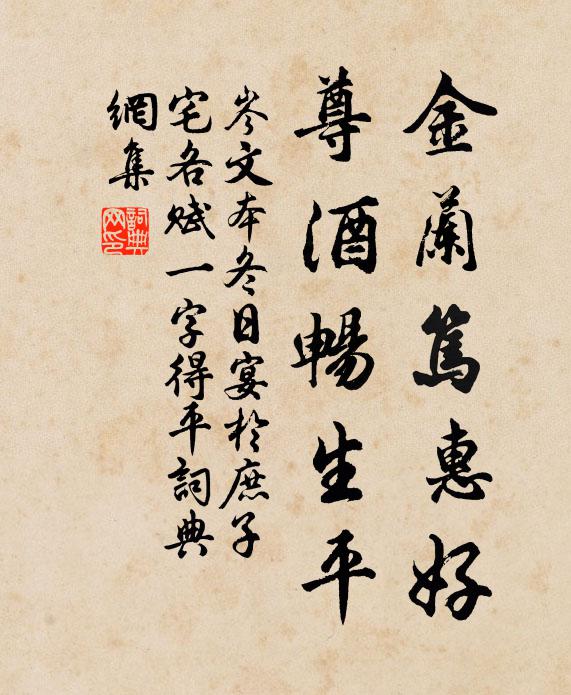 金蘭篤惠好
尊酒暢生平
岑文本冬日宴於庶子
宅各賦一字得平詞典
網集
詞典
网印